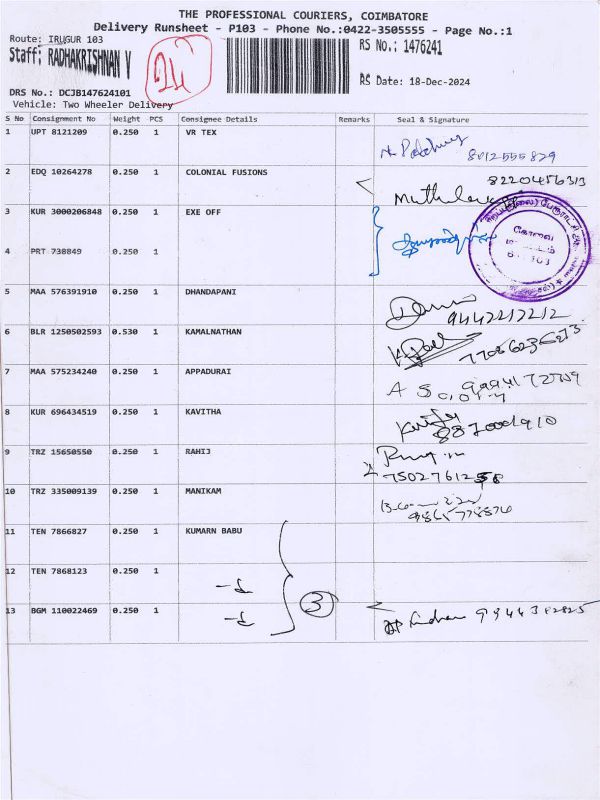 THE PROFESSIONAL COURIERS, COIMBATORE
Delivery Runsheet - P103 - Phone No.:0422-3505555 - Page No.:1
Route: IRUGUR 103
RS No.: 1476241
Staff: RADHAKRISHNAN V
24
RS Date: 18-Dec-2024
DRS No.: DCJB147624101
Vehicle: Two Wheeler Delivery
S No Consignment No Weight PCS Consignee Details Remarks Seal & Signature
1 UPT 8121209 0.250 1 VR TEX
8012555829
2 EDQ 10264278 0.250 1 COLONIAL FUSIONS 8220456313
3 KUR 3000206848 0.250 1 EXE OFF
கோவை
4 PRT 738849 0.250 1
5 MAA 576391910 0.250 1 DHANDAPANI
9442217212
6 BLR 1250502593 0.530 1 KAMALNATHAN
7 MAA 575234240 0.250 1 APPADURAI
8 KUR 696434519 0.250 1 KAVITHA
9 TRZ 15650550 0.250 1 RAHIJ
10 TRZ 335009139 0.250 1 MANIKAM
11 TEN 7866827 0.250 1 KUMARN BABU
12 TEN 7868123 0.250 1
3
13 BGM 110022469 0.250 1